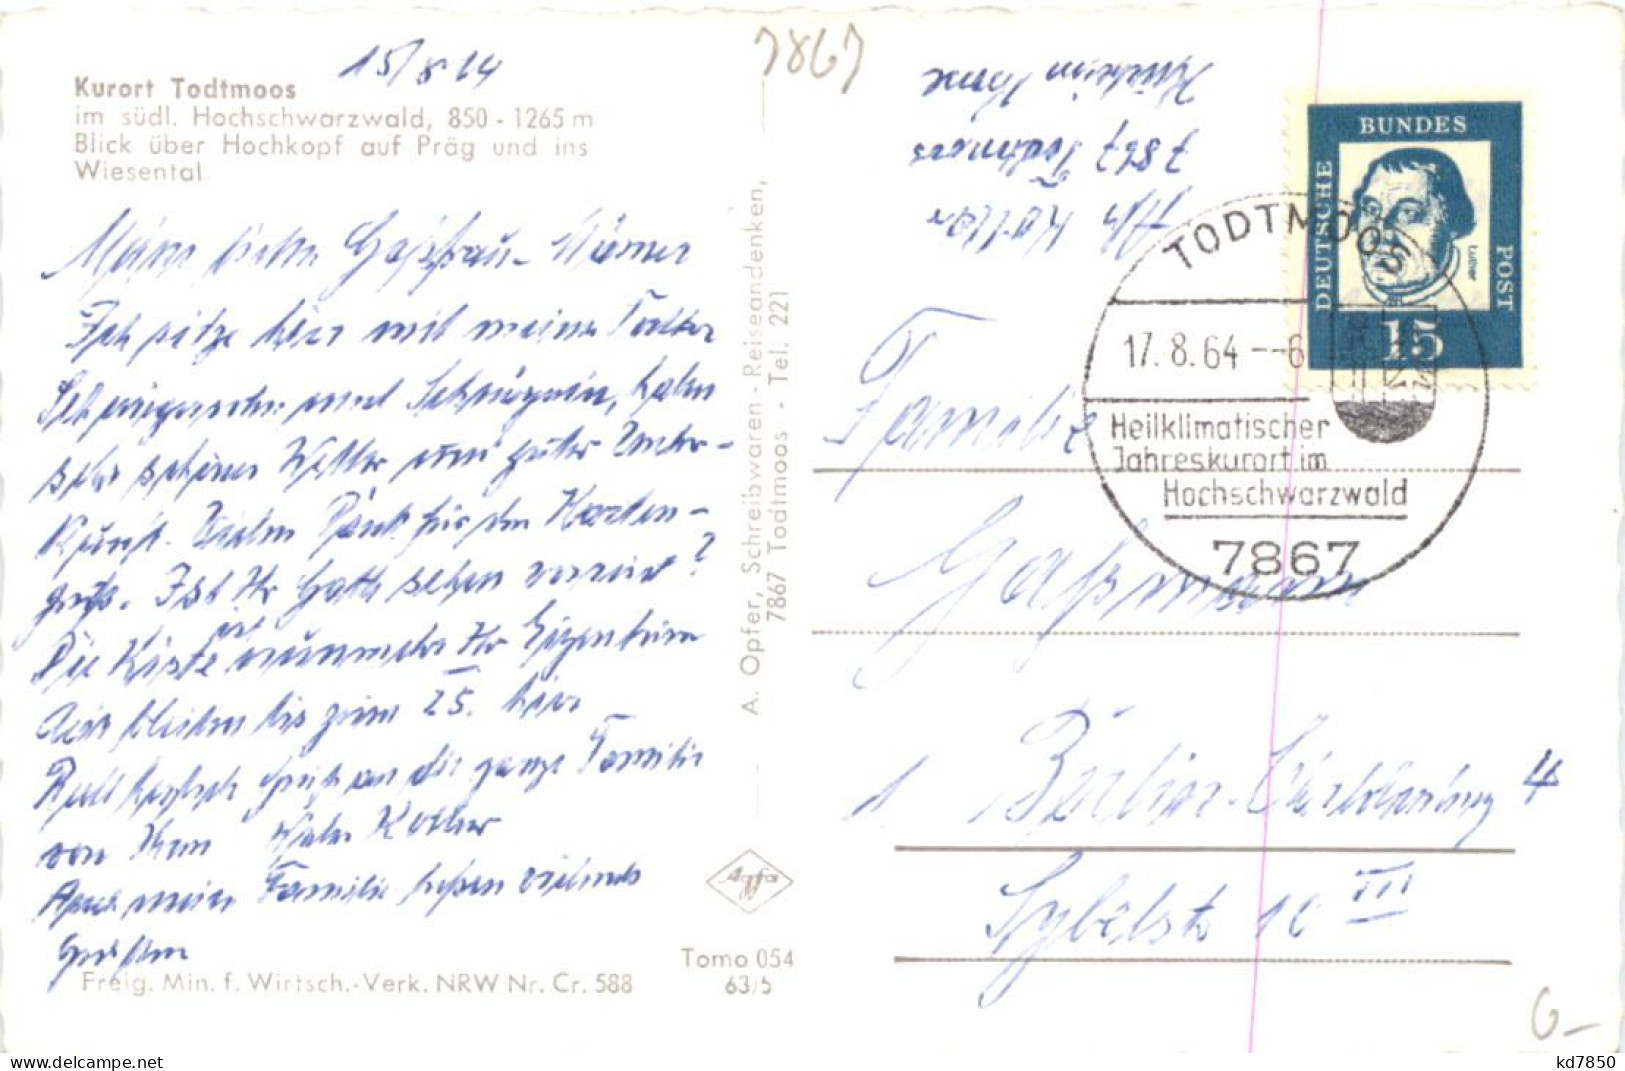 15/8 64
7867
Kurort Todtmoos
im südl. Hochschwarzwald, 850 - 1265 m
Blick über Hochkopf auf Präg und ins
Wiesental
Meine liebe
Ich sitze hier mit meiner Tochter
Schwiegersohn und haben
sehr schönes Wetter und gute Unter-
kunft. Vielen Dank für den Karten-
gruß. Ist Ihr schon verreist?
Die Kiste ist nunmehr Ihr Eigentum
Wir bleiben bis zum 25. hier
Recht herzlich Gruß an die ganze Familie
von Ihrem
Auch meine Familie lassen vielmals
grüßen
Freig. Min. f. Wirtsch.-Verk. NRW Nr. Cr. 588
A. Opfer, Schreibwaren - Reiseandenken,
7867 Todtmoos - Tel. 221
Agfa
Tomo 054
63/5
7867 Todtmoos
DEUTSCHE
BUNDES
POST
Luther
15
TODTMOOS
17.8.64 --6
Heilklimatischer
Jahreskurort im
Hochschwarzwald
7867
Familie
Gaßmann
1 Berlin-Charlottenburg 4
Sybelstr 10 III
6-
kd7850